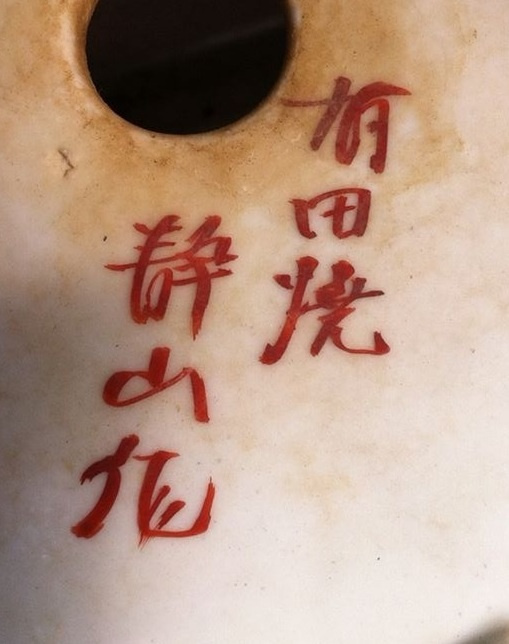 有田焼
静山作